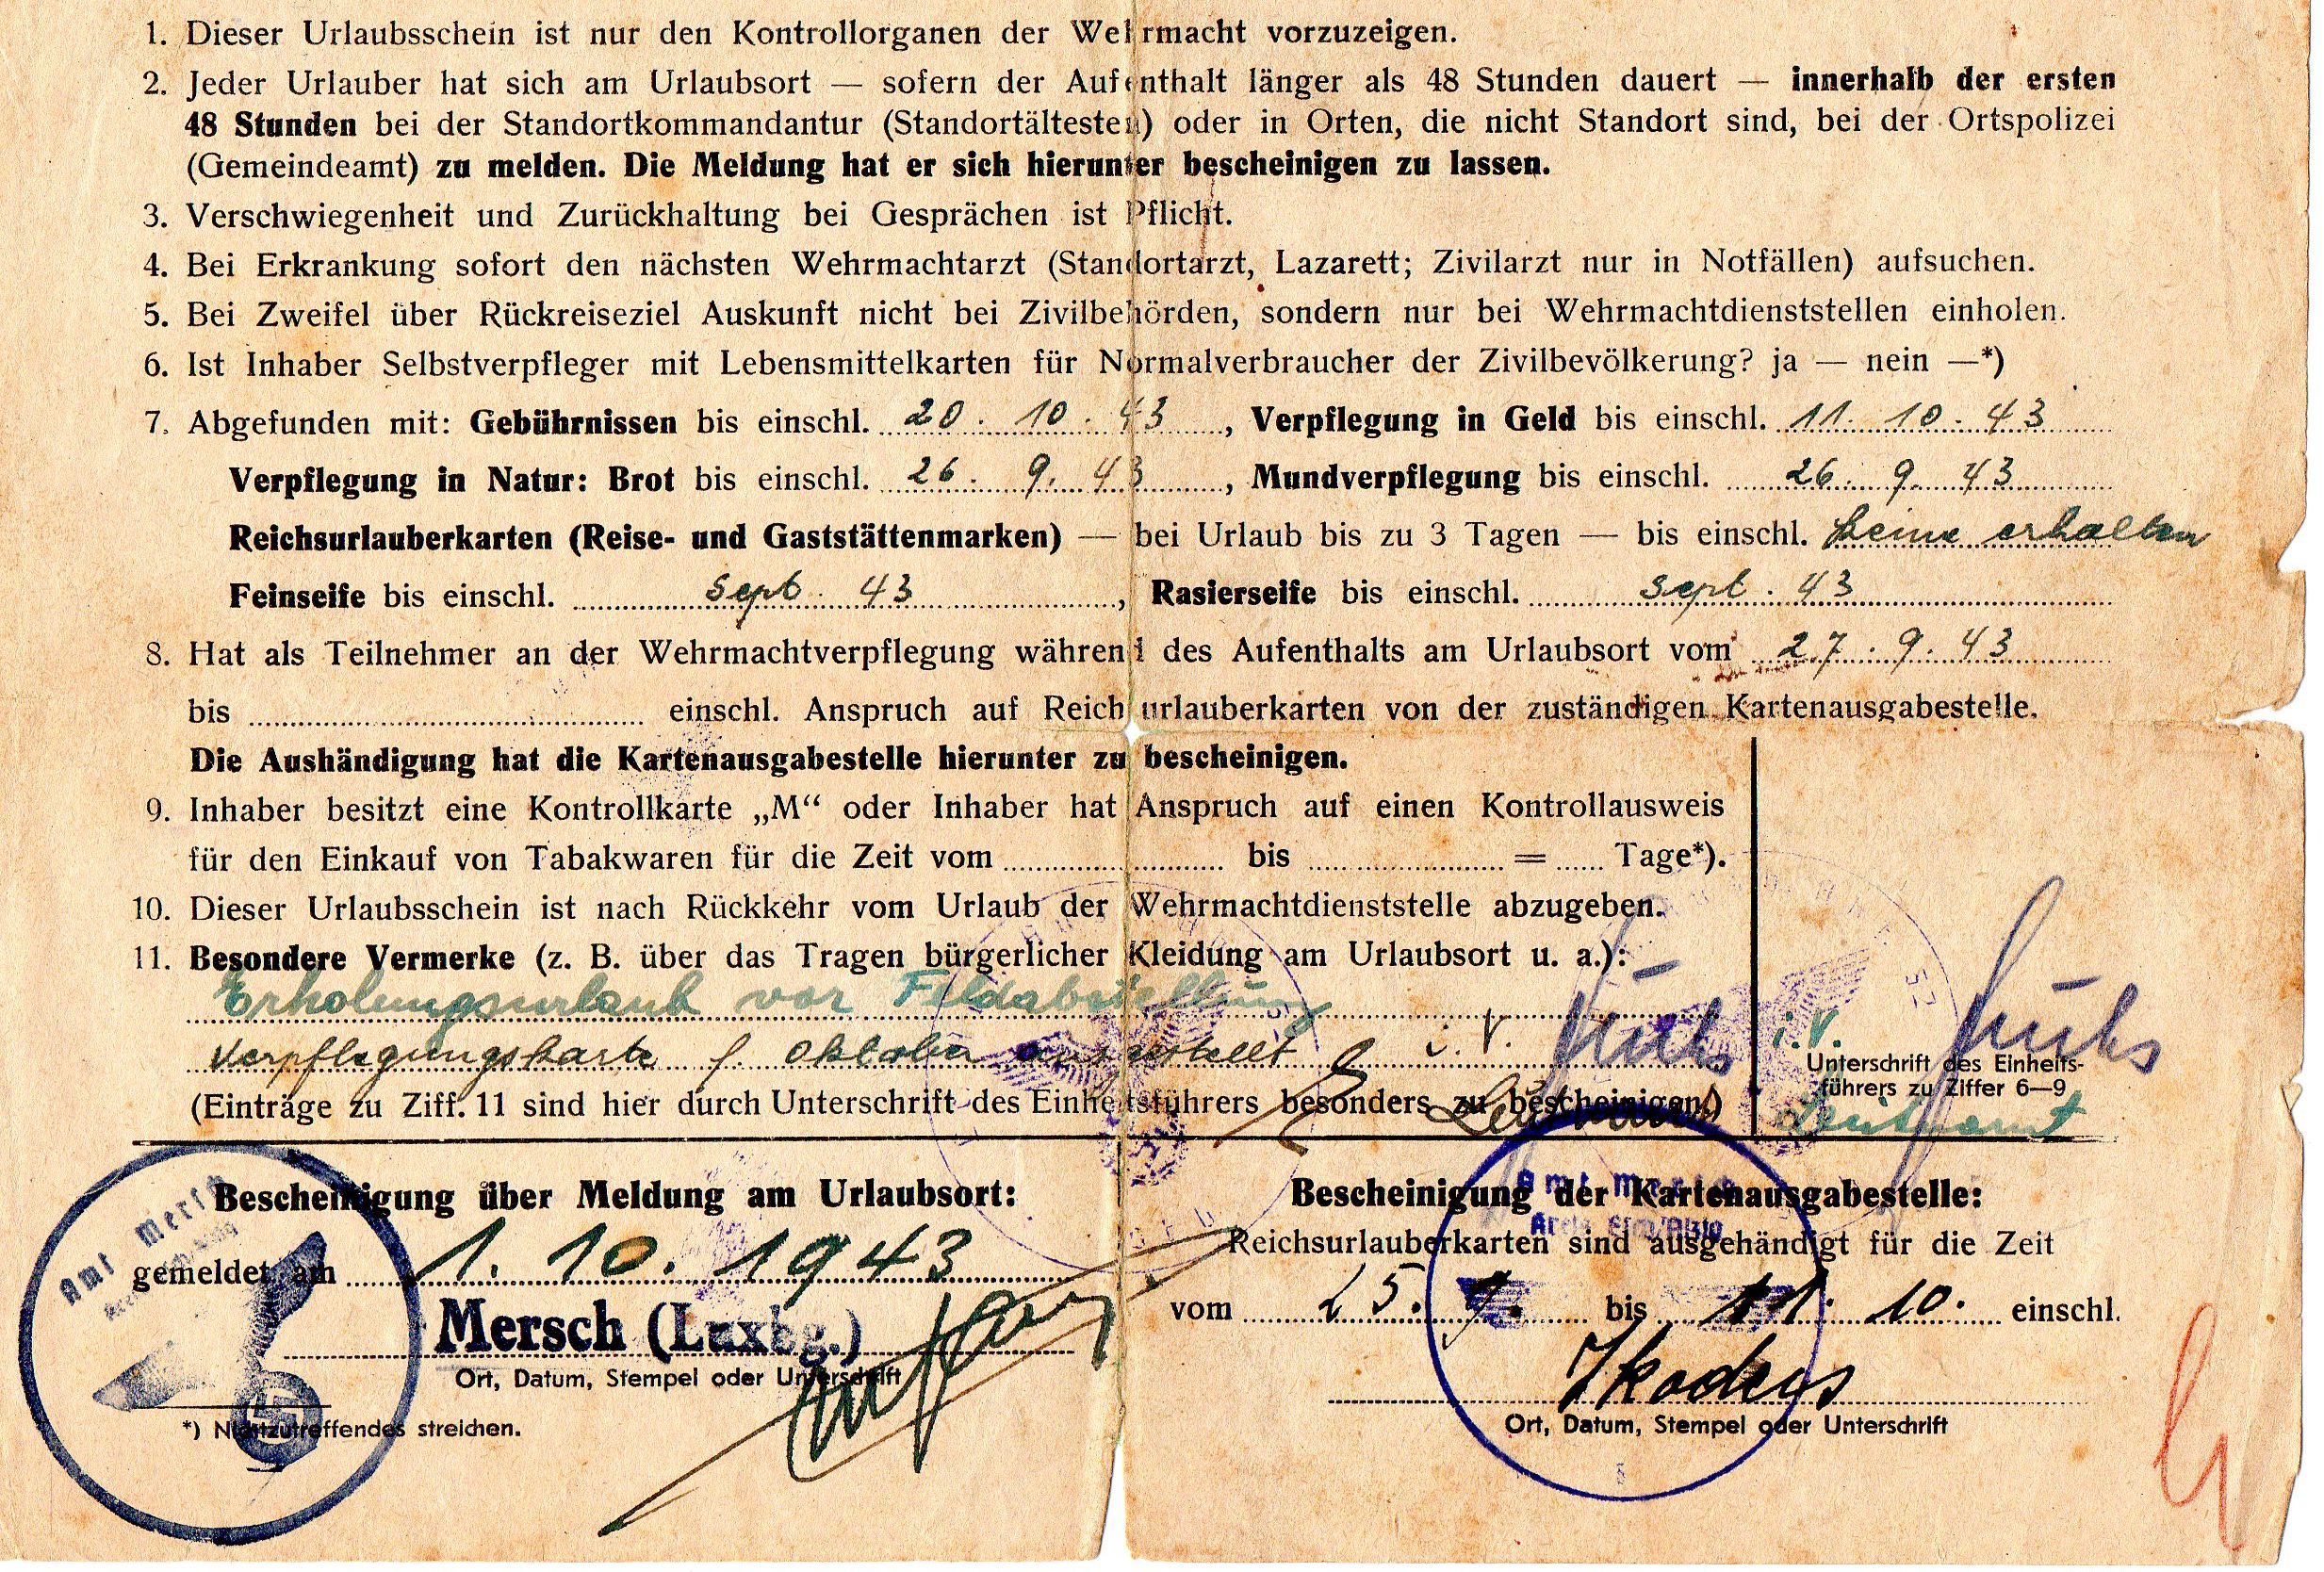 1. Dieser Urlaubsschein ist nur den Kontrollorganen der Wehrmacht vorzuzeigen.
2. Jeder Urlauber hat sich am Urlaubsort — sofern der Aufenthalt länger als 48 Stunden dauert — innerhalb der ersten
48 Stunden bei der Standortkommandantur (Standortältesten) oder in Orten, die nicht Standort sind, bei der Ortspolizei
(Gemeindeamt) zu melden. Die Meldung hat er sich hierunter bescheinigen zu lassen.
3. Verschwiegenheit und Zurückhaltung bei Gesprächen ist Pflicht.
4. Bei Erkrankung sofort den nächsten Wehrmachtarzt (Standortarzt, Lazarett; Zivilarzt nur in Notfällen) aufsuchen.
5. Bei Zweifel über Rückreiseziel Auskunft nicht bei Zivilbehörden, sondern nur bei Wehrmachtdienststellen einholen.
6. Ist Inhaber Selbstverpfleger mit Lebensmittelkarten für Normalverbraucher der Zivilbevölkerung? ja — nein —*)
7. Abgefunden mit: Gebührnissen bis einschl. 20. 10. 43, Verpflegung in Geld bis einschl. 11. 10. 43
Verpflegung in Natur: Brot bis einschl. 26. 9. 43, Mundverpflegung bis einschl. 26. 9. 43
Reichsurlauberkarten (Reise- und Gaststättenmarken) — bei Urlaub bis zu 3 Tagen — bis einschl. keine erhalten
Feinseife bis einschl. Sept. 43, Rasierseife bis einschl. Sept. 43
8. Hat als Teilnehmer an der Wehrmachtverpflegung während des Aufenthalts am Urlaubsort vom 27. 9. 43
bis einschl. Anspruch auf Reichsurlauberkarten von der zuständigen Kartenausgabestelle.
Die Aushändigung hat die Kartenausgabestelle hierunter zu bescheinigen.
9. Inhaber besitzt eine Kontrollkarte „M“ oder Inhaber hat Anspruch auf einen Kontrollausweis
für den Einkauf von Tabakwaren für die Zeit vom bis = Tage*).
10. Dieser Urlaubsschein ist nach Rückkehr vom Urlaub der Wehrmachtdienststelle abzugeben.
11. Besondere Vermerke (z. B. über das Tragen bürgerlicher Kleidung am Urlaubsort u. a.):
Erholungsurlaub vor Feldabstellung
Verpflegungskarte f. Oktober ausgestellt i. V.
(Einträge zu Ziff. 11 sind hier durch Unterschrift des Einheitsführers besonders zu bescheinigen.)
i. V.
Unterschrift des Einheits-
führers zu Ziffer 6—9
Leutnant
Bescheinigung über Meldung am Urlaubsort:
gemeldet am 1. 10. 1943
Mersch (Luxbg.)
Ort, Datum, Stempel oder Unterschrift
*) Nichtzutreffendes streichen.
Amt Mersch
Bescheinigung der Kartenausgabestelle:
Reichsurlauberkarten sind ausgehändigt für die Zeit
vom 25. 9. bis 11. 10. einschl.
Ort, Datum, Stempel oder Unterschrift
Amt Mersch